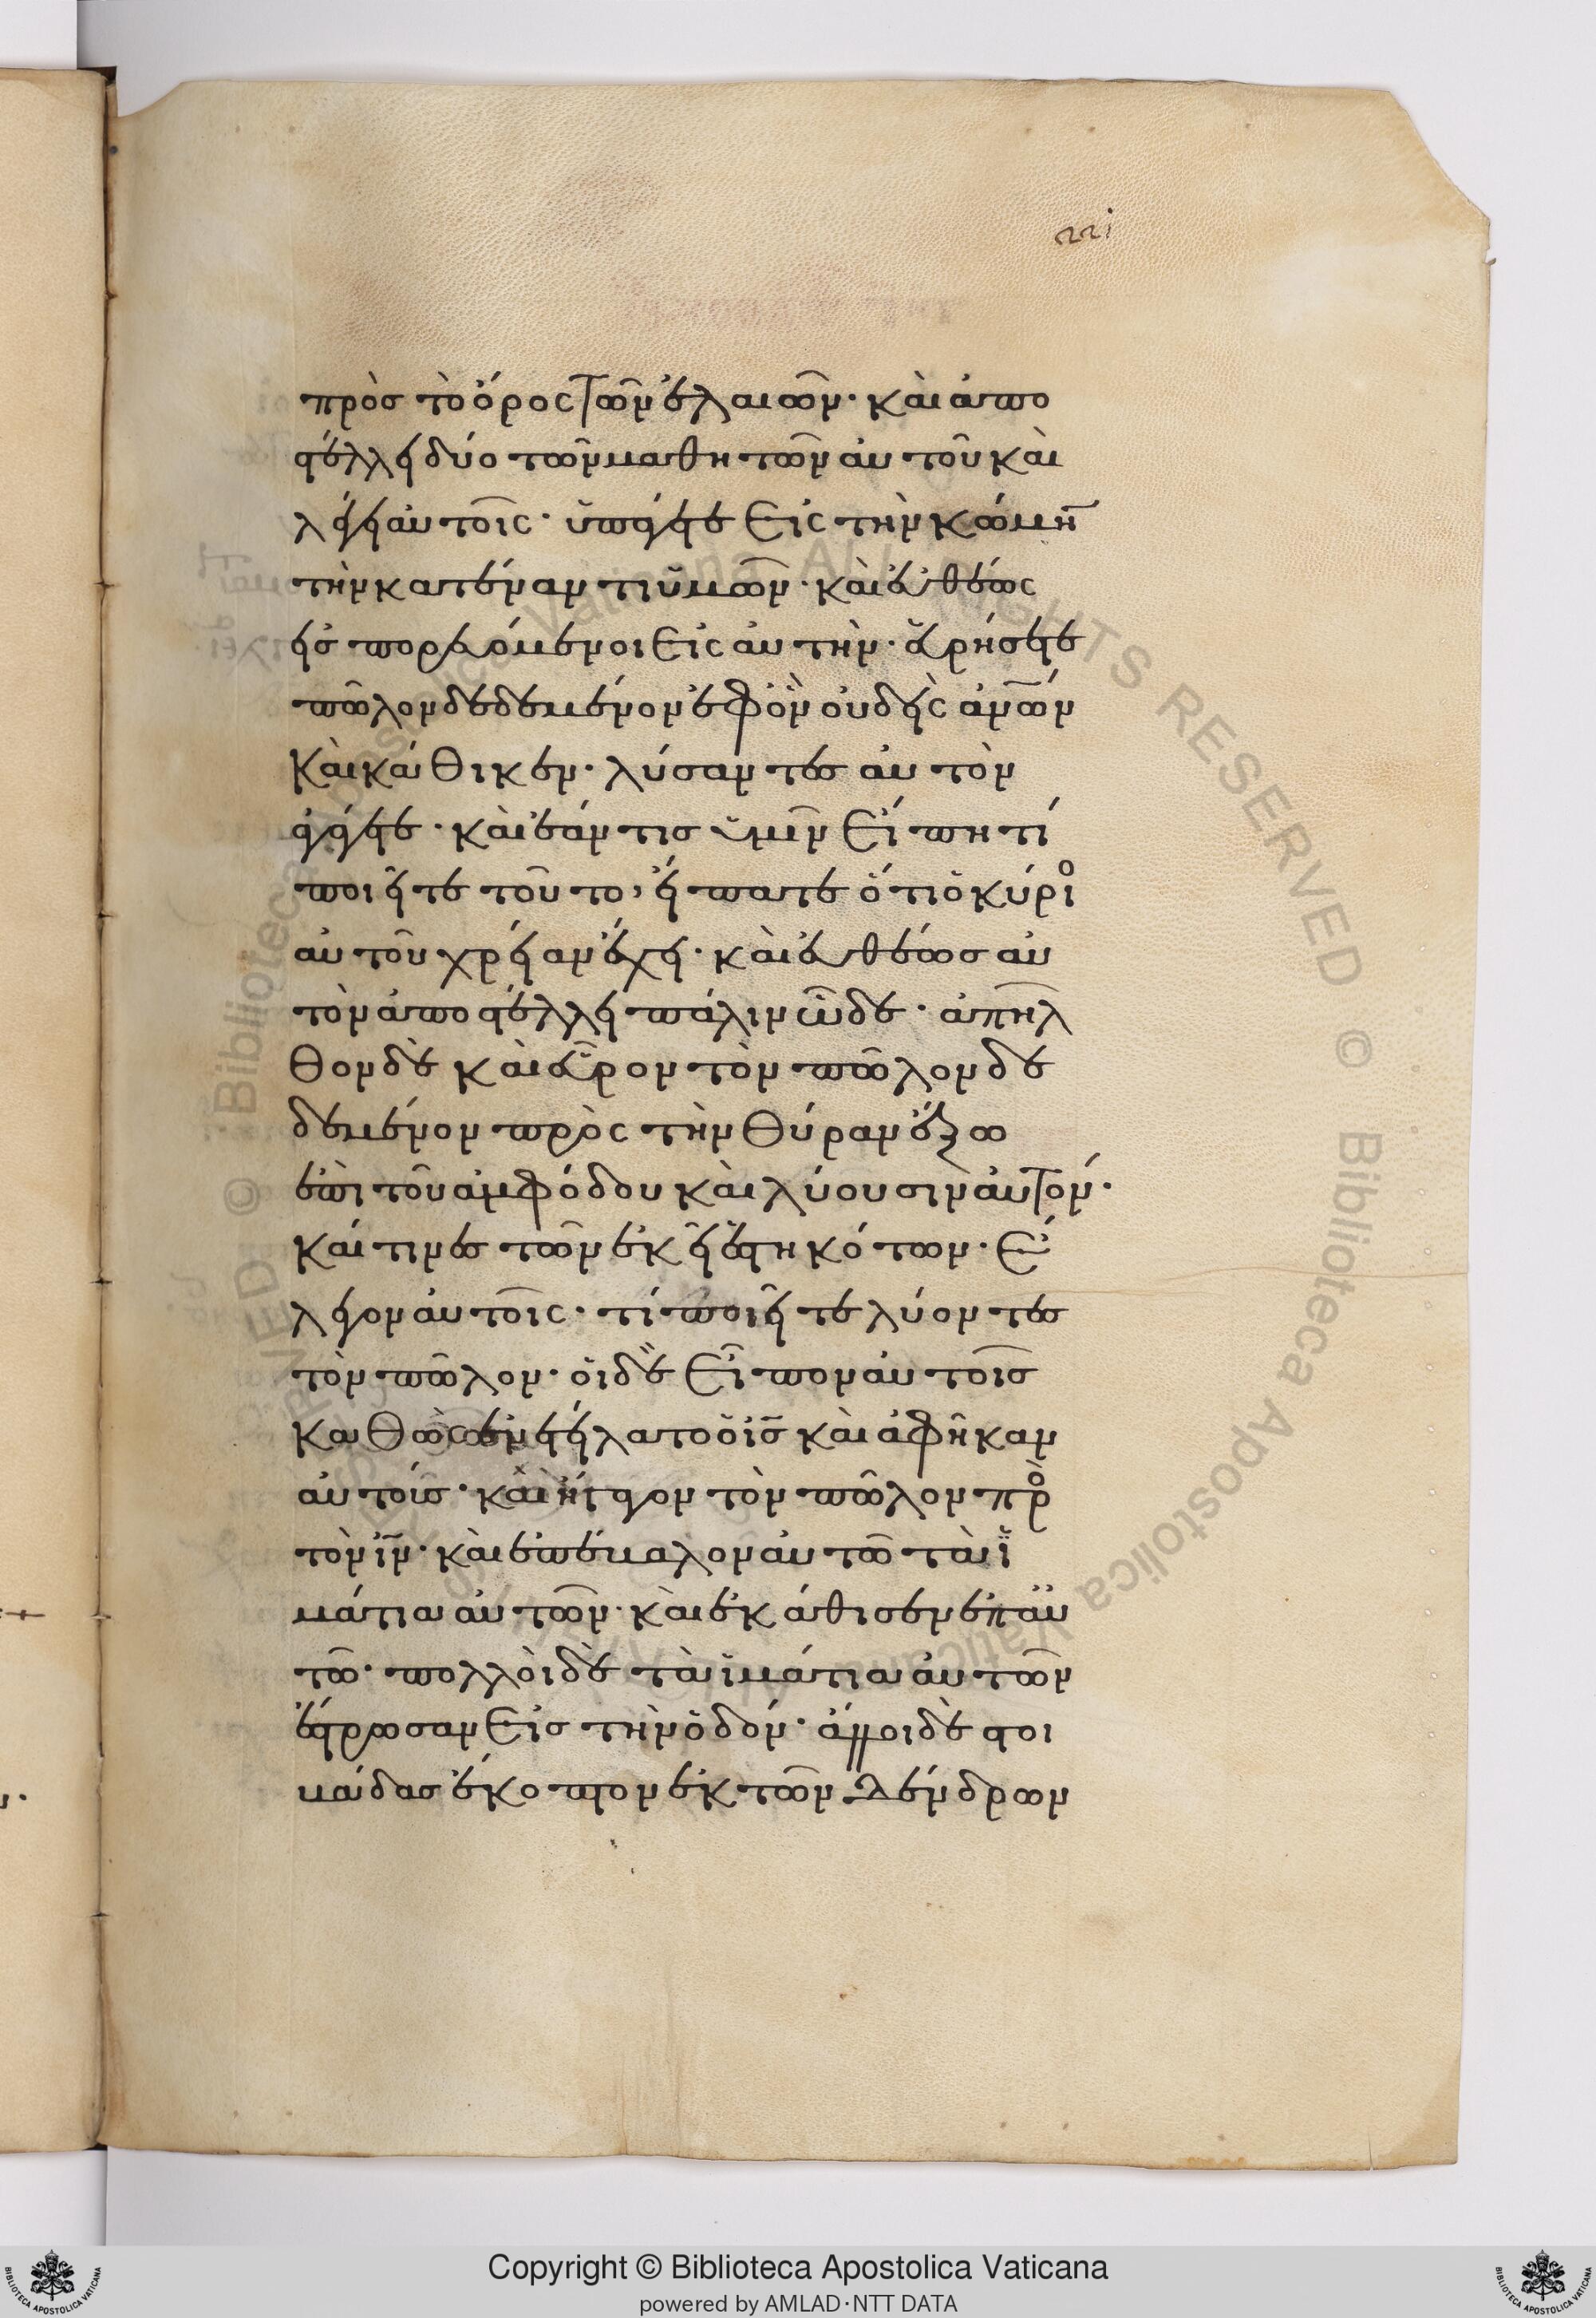 πρὸς τὸ ὄρος τῶν ἐλαιῶν· καὶ ἀπο
στέλλει δύο τῶν μαθητῶν αὐτοῦ καὶ
λέγει αὐτοῖς· ὑπάγετε εἰς τὴν κώμη
τὴν κατέναντι ὑμῶν· καὶ εὐθέως
εἰσπορευόμενοι εἰς αὐτὴν· εὑρήσετε
πῶλον δεδεμένον ἐφ ὃν οὐδεὶς ἀνων
κεκάθικεν· λύσαντες αὐτὸν
ἀγάγετε· καὶ ἐάν τις ὑμῖν εἴπη τί
ποιεῖτε τοῦτο, εἴπατε ὅτι ὁ κύριο
αὐτοῦ χρείαν ἔχει· καὶ εὐθέως αὐ
τὸν ἀποστέλλει πάλιν ὧδε· ἀπῆλ
θον δὲ καὶ εὗρον τὸν πῶλον δε
δεμένον πρὸς τὴν θύραν ἔξω
ἐπὶ τοῦ ἀμφόδου καὶ λύουσιν αὐτόν·
καί τινες τῶν ἐκεῖ ἑστηκότων· ἔ
λεγον αὐτοῖς· τί ποιεῖτε λύοντες
τὸν πῶλον· οἱ δὲ εἶπον αὐτοῖς
καθὼς ἐνετείλατο ὁ ις καὶ ἀφῆκαν
αὐτούς· καὶ ἤγαγον τὸν πῶλον πρὸ
τὸν ιν· καὶ ἐπέβαλον αὐτῶ τὰ ἱ
μάτια αὐτῶν· καὶ ἐκάθισεν ἐπ αὐ
τῶ· πολλοὶ δὲ τὰ ἱμάτια αὐτῶν
ἔστρωσαν εἰς τὴν ὁδόν· ἄλλοι δὲ στοι
βάδας ἔκοπτον ἐκ τῶν δένδρων
Copyright © Biblioteca Apostolica Vaticana
powered by AMLAD·NTT DATA